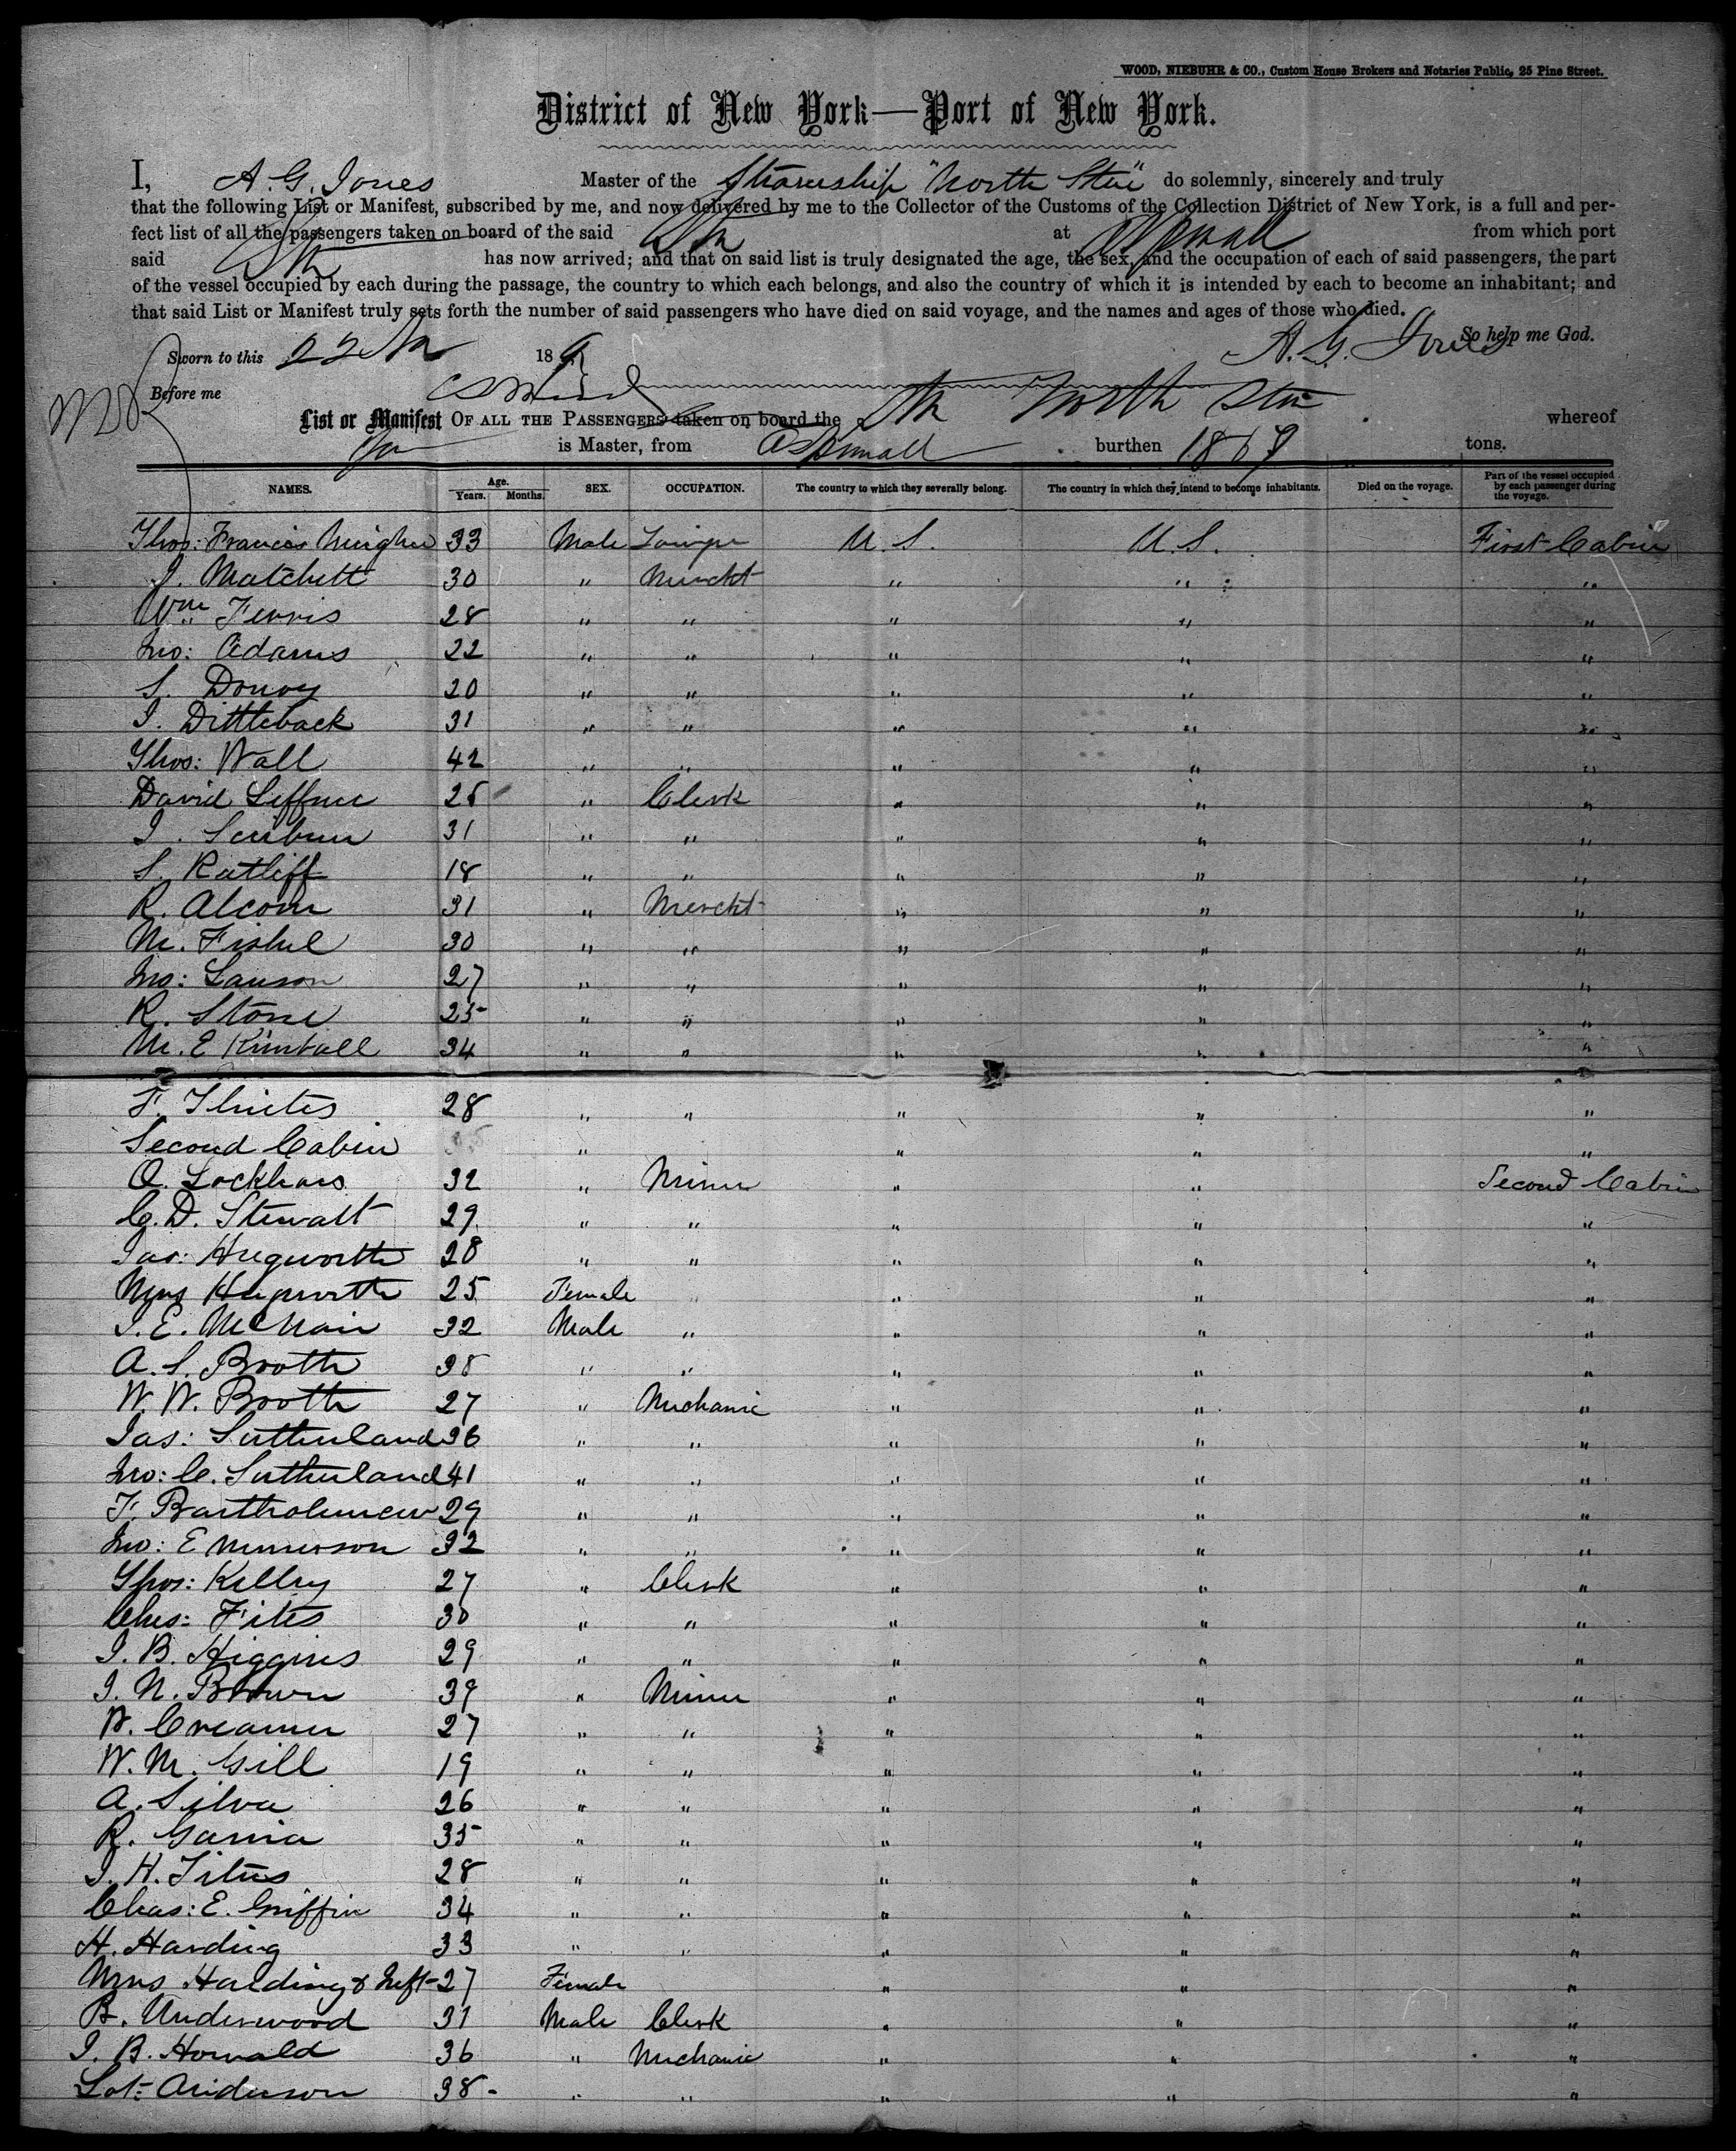 WOOD, NIEBUHR & CO., Custom House Brokers and Notaries Public, 25 Pine Street.
District of New York—Port of New York.
I, A. G. Jones Master of the Steamship "North Star" do solemnly, sincerely and truly
that the following List or Manifest, subscribed by me, and now delivered by me to the Collector of the Customs of the Collection District of New York, is a full and per-
fect list of all the passengers taken on board of the said Str at Aspinwall from which port
said Str has now arrived; and that on said list is truly designated the age, the sex, and the occupation of each of said passengers, the part
of the vessel occupied by each during the passage, the country to which each belongs, and also the country of which it is intended by each to become an inhabitant; and
that said List or Manifest truly sets forth the number of said passengers who have died on said voyage, and the names and ages of those who died.
So help me God.
Sworn to this 18 A. G. Jones
Before me
List or Manifest OF ALL THE PASSENGERS taken on board the Str North Star whereof
is Master, from Aspinwall burthen 1867 tons.
NAMES. Age. Years. Months. SEX. OCCUPATION. The country to which they severally belong. The country in which they intend to become inhabitants. Died on the voyage. Part of the vessel occupied by each passenger during the voyage.
Thos: Francis Meagher 33 Male Lawyer U. S. U. S. First Cabin
J. Matchett 30 " Mercht " " "
Wm Ferris 28 " " " " "
Jno: Adams 22 " " " " "
S. 20 " " " " "
I. Dittleback 31 " " " " "
Thos: Wall 42 " " " " "
David 25 " Clerk " " "
I. 31 " " " " "
S. Ratliff 18 " " " " "
R. Alcorn 31 " Mercht " " "
M. Fishel 30 " " " " "
Jno: Lawson 27 " " " " "
R. Stone 25 " " " " "
M. E Kimball 34 " " " " "
F. 28 " " " " "
Second Cabin " " " "
32 " Miner " " Second Cabin
C. D. Stewatt 29 " " " " "
Jas: Hegworth 28 " " " " "
Mrs Hepworth 25 Female " " " "
J. E. McNair 32 Male " " " "
A. S. Booth 38 " " " " "
W. W. Booth 27 " Mechanic " " "
Jas: Sutherland 36 " " " " "
Jno: C. Sutherland 41 " " " " "
F. Bartholemew 29 " " " " "
Jno: Emmerson 32 " " " " "
Thos: Kelley 27 " Clerk " " "
Chas: Fites 30 " " " " "
J. B. Higgins 29 " " " " "
J. N. Brown 39 " Miner " " "
W. Creamer 27 " " " " "
W. M. Gill 19 " " " " "
A. Silva 26 " " " " "
R. Garcia 35 " " " " "
J. H. Titus 28 " " " " "
Chas: E. Griffin 34 " " " " "
H. Harding 33 " " " " "
Mrs Harding & Inft 27 Female " " "
B. Underwood 31 Male Clerk " " "
J. B. Howald 36 " Mechanic " " "
Anderson 38 " " " " "